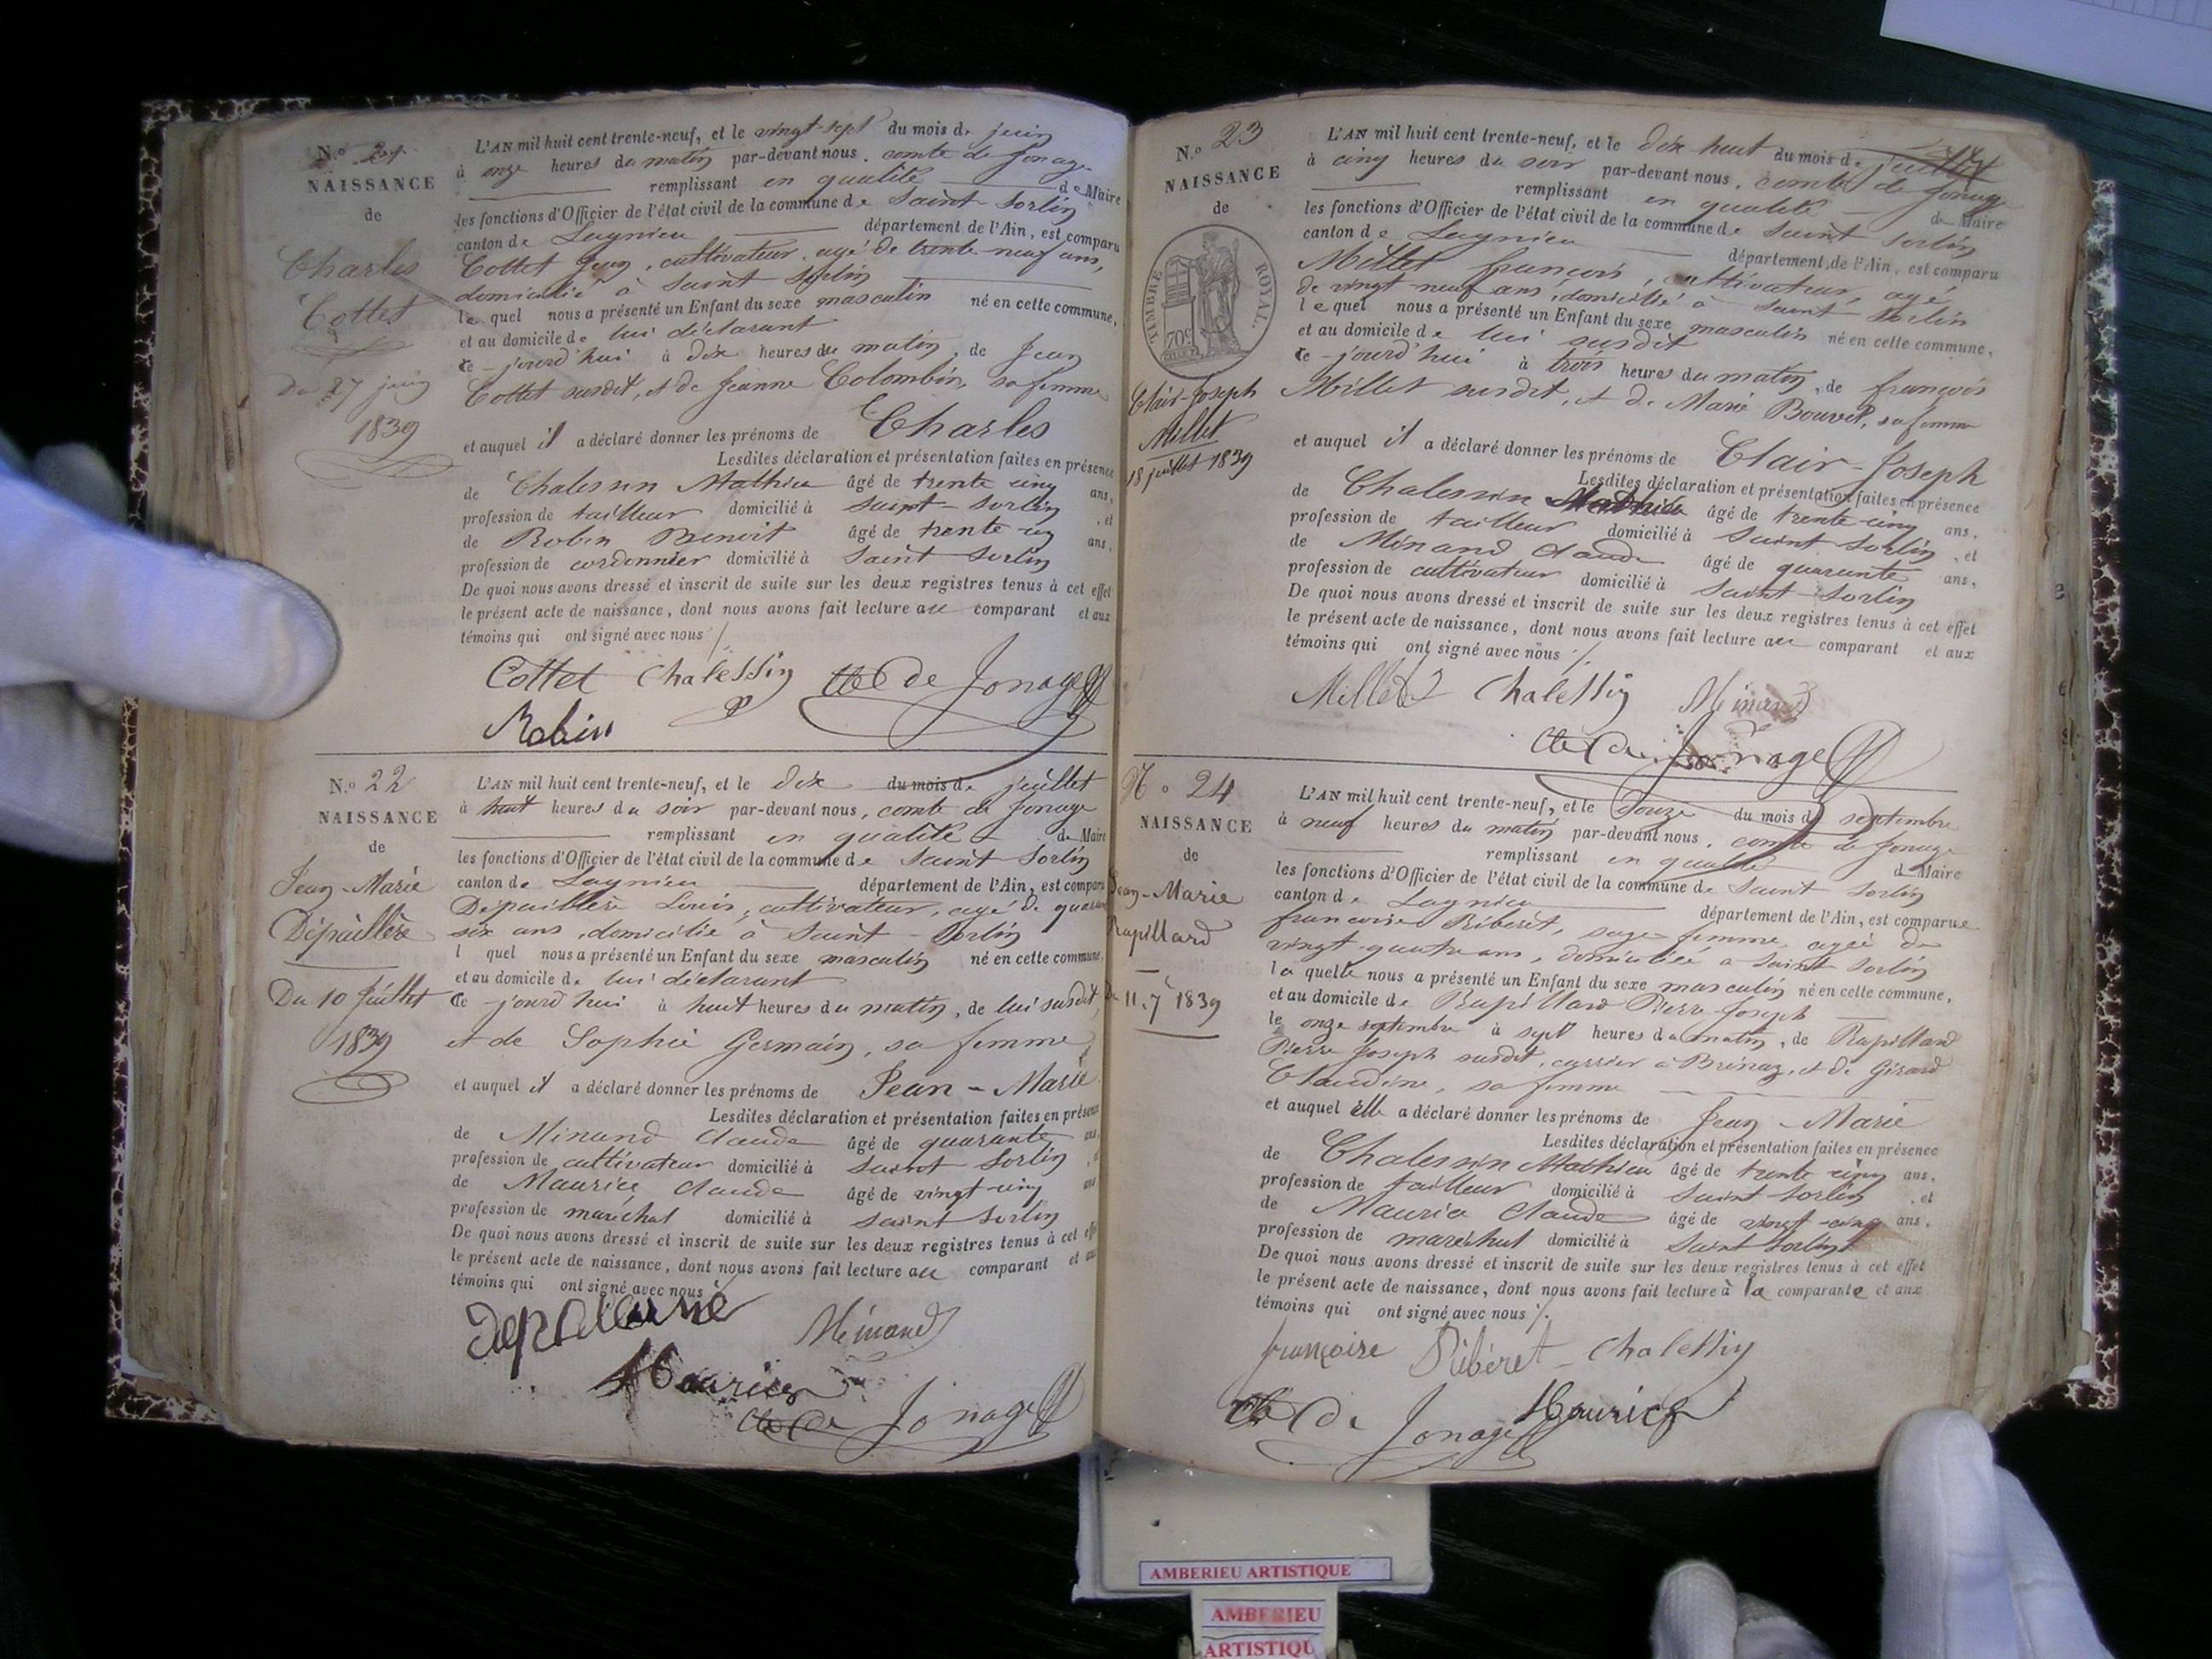 N.o 21
NAISSANCE
de
Charles
Cottet
Du 27 juin
1839
L'AN mil huit cent trente-neuf, et le vingt-sept du mois de juin
à onze heures du matin par-devant nous, comte de Jonage
remplissant en qualité de Maire
les fonctions d'Officier de l'état civil de la commune de Saint-Sorlin
canton de Lagnieu département de l'Ain, est comparu
Cottet Jean, cultivateur, agé de trente-neuf ans,
domicilié à Saint Sorlin
lequel nous a présenté un Enfant du sexe masculin né en cette commune,
et au domicile de lui déclarant
ce-jourd'hui à dix heures du matin, de Jean
Cottet susdit, et de Jeanne Colombin, sa femme
et auquel il a déclaré donner les prénoms de Charles
Lesdites déclaration et présentation faites en présence
de Chalessin Mathieu âgé de trente cinq ans,
profession de tailleur domicilié à Saint-Sorlin, et
de Robin Benoit âgé de trente-un ans,
profession de cordonnier domicilié à Saint Sorlin
De quoi nous avons dressé et inscrit de suite sur les deux registres tenus à cet effet
le présent acte de naissance, dont nous avons fait lecture au comparant et aux
témoins qui ont signé avec nous
Cottet Chalessin Cte de Jonage
Robin
N.o 22
NAISSANCE
de
Jean-Marie
Dépaillère
Du 10 Juillet
1839
L'AN mil huit cent trente-neuf, et le dix du mois de juillet
à huit heures du soir par-devant nous, comte de Jonage
remplissant en qualité de Maire
les fonctions d'Officier de l'état civil de la commune de Saint Sorlin
canton de Lagnieu département de l'Ain, est comparu
Dépaillère Louis, cultivateur, agé de quaran
six ans, domicilié à Saint-Sorlin
l quel nous a présenté un Enfant du sexe masculin né en cette commune,
et au domicile de lui déclarant
ce-jourd'hui à huit heures du matin, de lui susdit,
et de Sophie Germain, sa femme
et auquel il a déclaré donner les prénoms de Jean-Marie
Lesdites déclaration et présentation faites en présence
de Minand Claude âgé de quarante ans,
profession de cultivateur domicilié à Saint Sorlin, et
de Maurice Claude âgé de vingt-cinq ans
profession de maréchal domicilié à Saint Sorlin
De quoi nous avons dressé et inscrit de suite sur les deux registres tenus à cet effet
le présent acte de naissance, dont nous avons fait lecture au comparant et aux
témoins qui ont signé avec nous
Minand
Maurice
Cte de Jonage
N.o 23
NAISSANCE
de
TIMBRE ROYAL.
70c
Clair-Joseph
Millet
18 juillet 1839
L'AN mil huit cent trente-neuf, et le dix-huit du mois de juillet
à cinq heures du soir par-devant nous, comte de Jonage
remplissant en qualité de Maire
les fonctions d'Officier de l'état civil de la commune de Saint Sorlin
canton de Lagnieu département de l'Ain, est comparu
Millet françois, cultivateur, agé
de vingt neuf ans, domicilié à Saint-Sorlin
lequel nous a présenté un Enfant du sexe masculin né en cette commune,
et au domicile de lui susdit
ce-jourd'hui à trois heures du matin, de françois
Millet susdit, et de Marie Bouvet, sa femme
et auquel il a déclaré donner les prénoms de Clair-Joseph
Lesdites déclaration et présentation faites en présence
de Chalessin Mathieu âgé de trente-cinq ans,
profession de tailleur domicilié à Saint Sorlin, et
de Minand Claude âgé de quarante ans,
profession de cultivateur domicilié à Saint-Sorlin
De quoi nous avons dressé et inscrit de suite sur les deux registres tenus à cet effet
le présent acte de naissance, dont nous avons fait lecture au comparant et aux
témoins qui ont signé avec nous
Millet Chalessin Minand
Cte de Jonage
No 24
NAISSANCE
de
Jean-Marie
Rapillard
Du 11. 7 1839
L'AN mil huit cent trente-neuf, et le douze du mois de septembre
à neuf heures du matin par-devant nous, comte de Jonage
remplissant en qualité de Maire
les fonctions d'Officier de l'état civil de la commune de Saint Sorlin
canton de Lagnieu département de l'Ain, est comparue
françoise Ribéret, sage-femme, agée de
vingt-quatre ans, domiciliée à Saint Sorlin
laquelle nous a présenté un Enfant du sexe masculin né en cette commune,
et au domicile de Rapillard Pierre Joseph
le onze septembre à sept heures du matin, de Rapillard
Pierre Joseph susdit, carrier à Brénaz, et de Girard
Claudine, sa femme
et auquel elle a déclaré donner les prénoms de Jean-Marie
Lesdites déclaration et présentation faites en présence
de Chalessin Mathieu âgé de trente cinq ans,
profession de tailleur domicilié à Saint-Sorlin, et
de Maurice Claude âgé de vingt-cinq ans,
profession de maréchal domicilié à Saint Sorlin
De quoi nous avons dressé et inscrit de suite sur les deux registres tenus à cet effet
le présent acte de naissance, dont nous avons fait lecture à la comparante et aux
témoins qui ont signé avec nous
françoise Ribéret Chalessin
Cte de Jonage Maurice
AMBERIEU ARTISTIQUE
AMBERIEU
ARTISTIQU